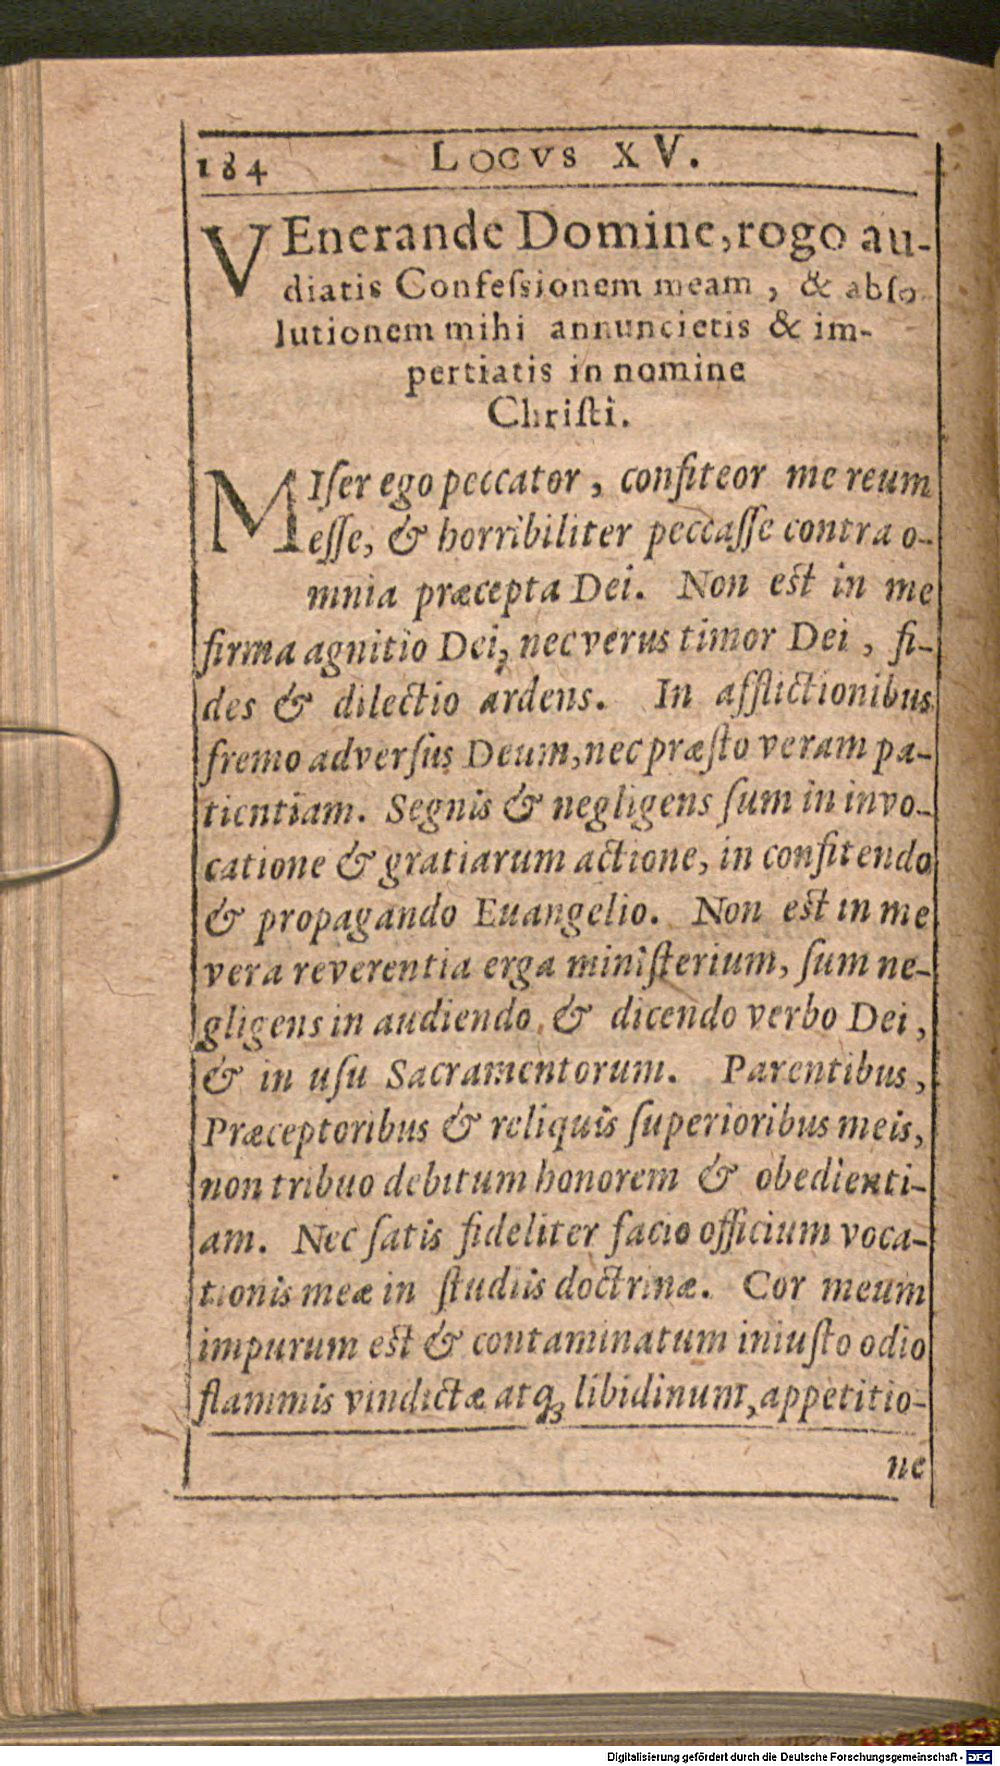 184 LOCVS XV.
VEnerande Domine, rogo au-
diatis Confeſsionem meam, & abſo
lutionem mihi annuncietis & im-
pertiatis in nomine
Chriſti.
MIſer ego peccator, confiteor me reum
eſſe, & horribiliter peccaſſe contra o-
mnia præcepta Dei. Non est in me
firma agnitio Dei, nec verus timor Dei, fi-
des & dilectio ardens. In afflictionibus
fremo adverſus Deum, nec præſto veram pa-
tientiam. Segnis & negligens ſum in invo-
catione & gratiarum actione, in confitendo
& propagando Euangelio. Non est in me
vera reverentia erga miniſterium, ſum ne-
gligens in audiendo & dicendo verbo Dei,
& in uſu Sacramentorum. Parentibus,
Præceptoribus & reliquis ſuperioribus meis,
non tribuo debitum honorem & obedienti-
am. Nec ſatis fideliter facio officium voca-
tionis meæ in ſtudiis doctrinæ. Cor meum
impurum est & contaminatum iniuſto odio
flammis vindictæ atq; libidinum, appetitio-
ne
Digitalisierung gefördert durch die Deutsche Forschungsgemeinschaft - DFG